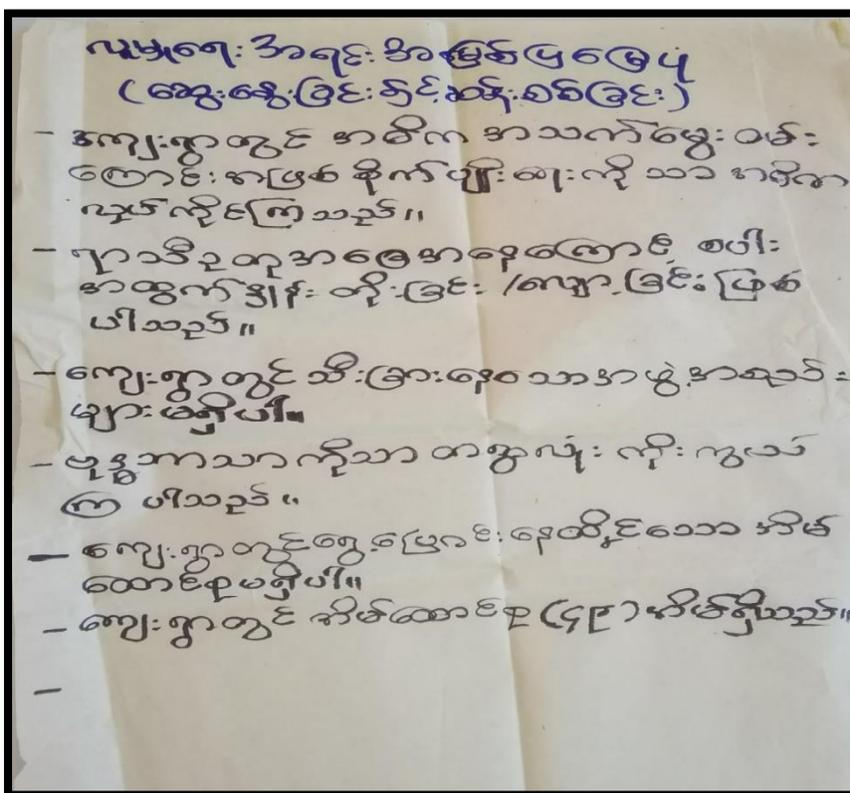 လူမှုရေး အရင်းအမြစ်ပြမြေပုံ
(ဆွေးနွေးခြင်းနှင့်ဆန်းစစ်ခြင်း)
- ကျေးရွာတွင် အဓိက အသက်မွေးဝမ်း
ကြောင်းအဖြစ် စိုက်ပျိုးရေးကိုသာ အဓိက
လုပ်ကိုင်ကြသည်။
- ရာသီဥတုအခြေအနေကြောင့် စပါး
အထွက်နှုန်း တိုးခြင်း /လျော့ခြင်းဖြစ်
ပါသည်။
- ကျေးရွာတွင် သီးခြားနေသောအဖွဲ့အစည်း
များမရှိပါ။
- ဗုဒ္ဓဘာသာကိုသာ တရွာလုံး ကိုးကွယ်
ကြ ပါသည်။
- ကျေးရွာတွင်ရွေ့ပြောင်းနေထိုင်သော အိမ်
ထောင်စုမရှိပါ။
- ကျေးရွာတွင် အိမ်ထောင်စု (၄၉) အိမ်ရှိသည်။
-